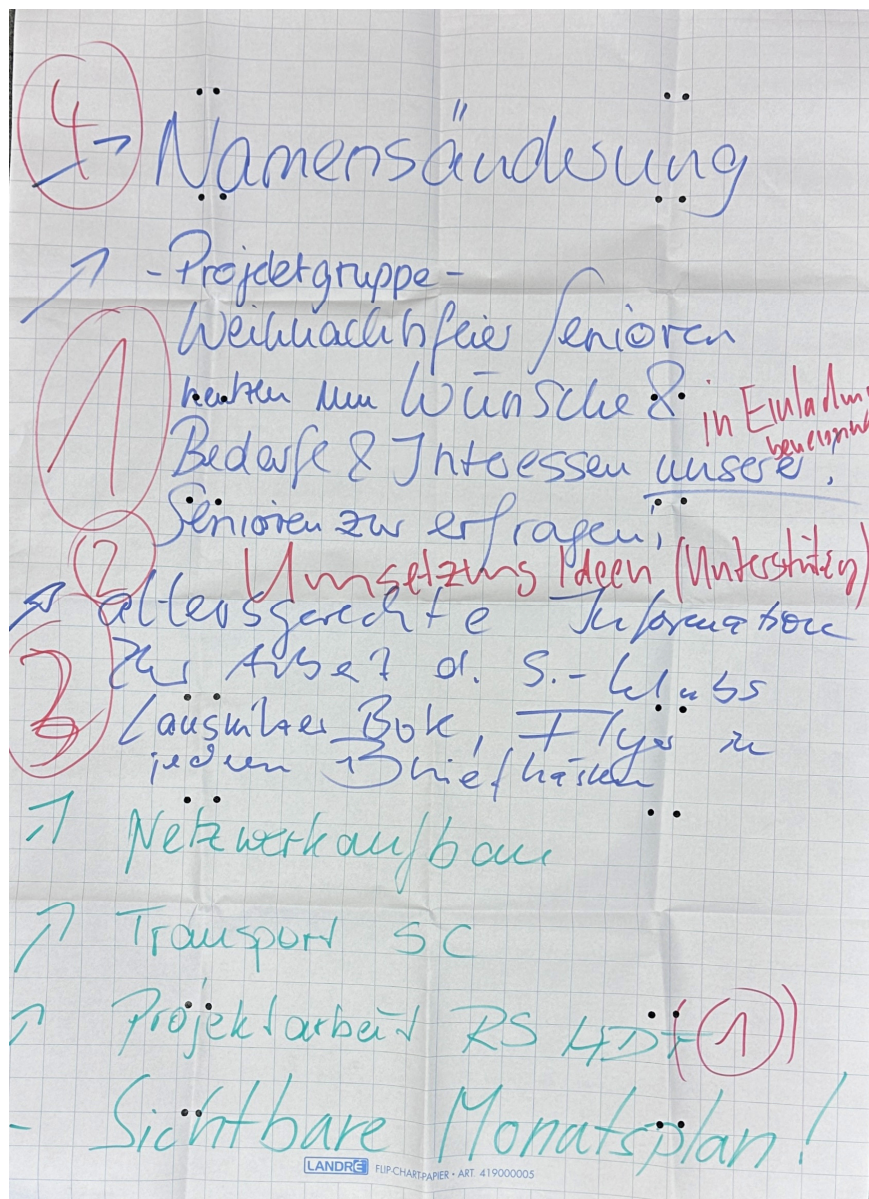 4
→ Namensänderung
↗ - Projektgruppe -
Weihnachtsfeier Senioren
1
nutzen um Wünsche &
in Einladung
Bedarfe & Interessen unsere
Senioren zur erfragen,
2
Umsetzung Ideen (Unterstützung)
↗ altersgerechte Information
3
zur Arbeit d. S.-Klubs
Lausitzer Bote, Flyer in
jeden Briefkasten
↗ Netzwerkaufbau
↗ Transport SC
↗ Projektarbeit RS (1)
- Sichtbare Monatsplan!
LANDRÉ FLIP-CHART-PAPIER • ART. 419000005